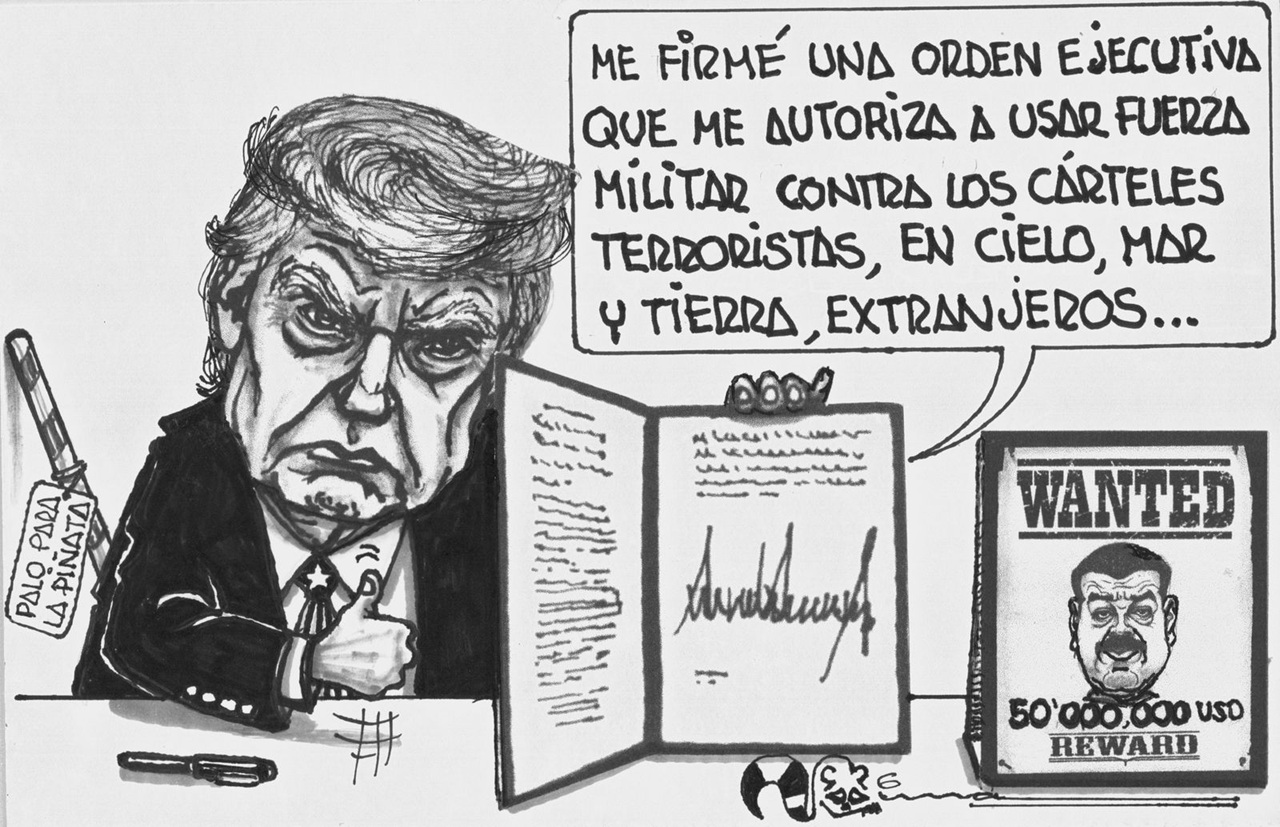 ME FIRMÉ UNA ORDEN EJECUTIVA
QUE ME AUTORIZA A USAR FUERZA
MILITAR CONTRA LOS CÁRTELES
TERRORISTAS, EN CIELO, MAR
Y TIERRA, EXTRANJEROS...
PALO PARA
LA PIÑATA
WANTED
50'000,000 USD
REWARD